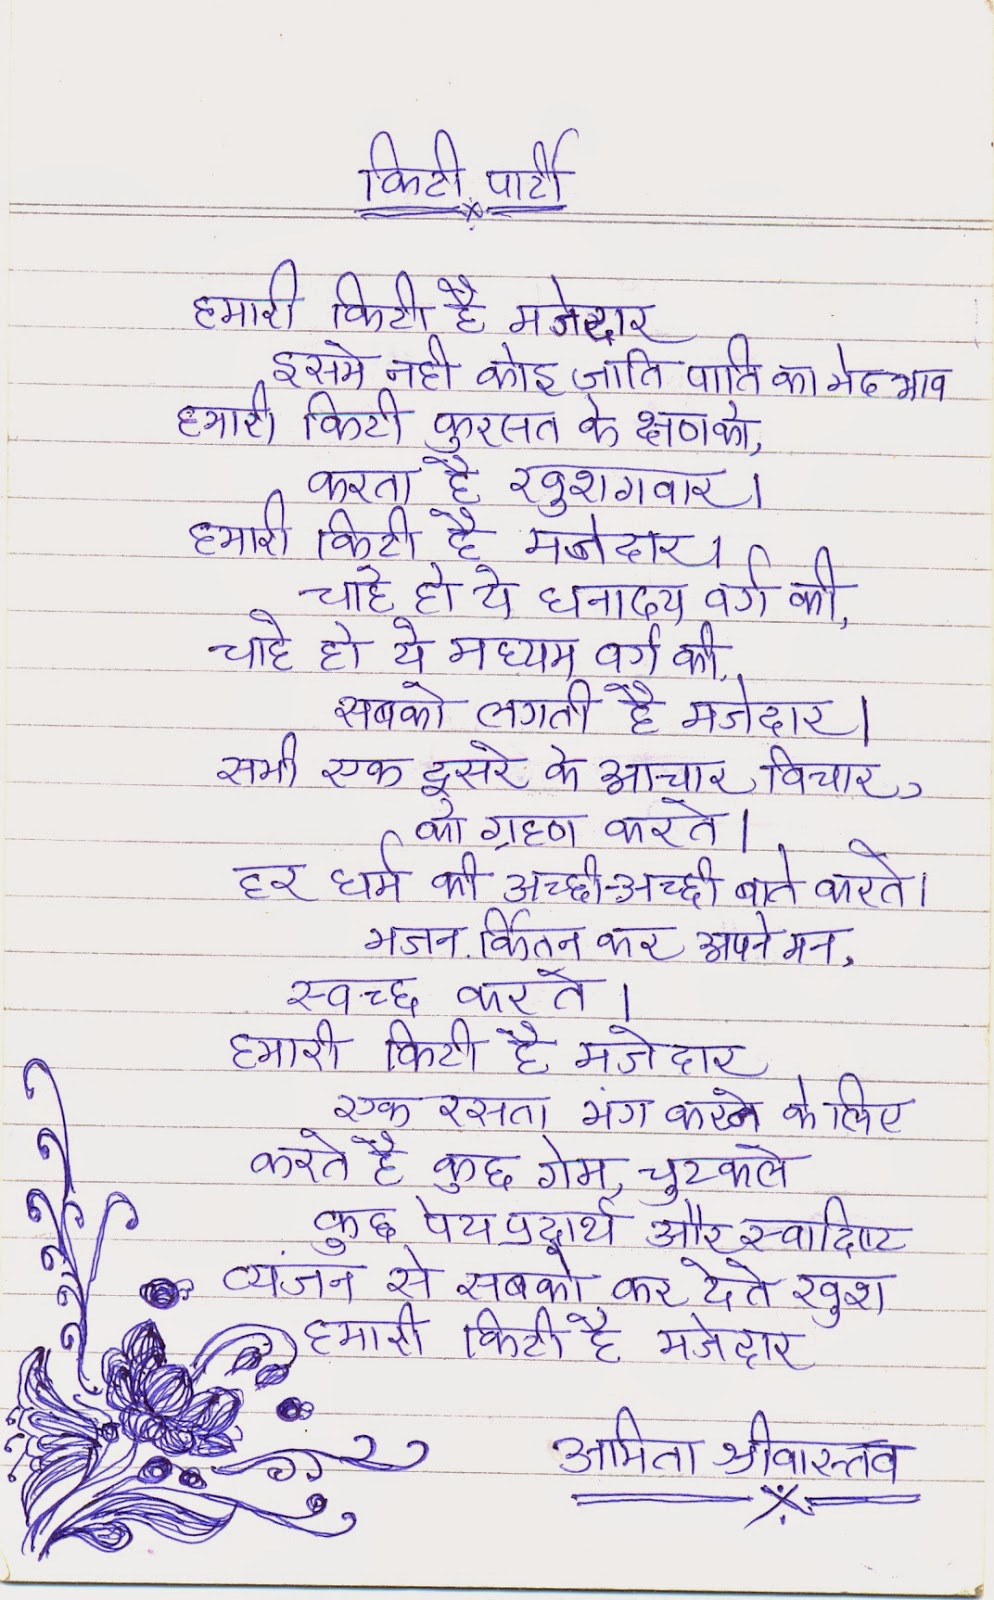 किटी पार्टी
हमारी किटी है मजेदार
इसमे नही कोइ जाति पाति का भेद भाव
हमारी किटी फुरसत के क्षण को,
करता है खुशगवार।
हमारी किटी है मजेदार।
चाहे हो ये धनाढय वर्ग की,
चाहे हो ये मध्यम वर्ग की,
सबको लगती है मजेदार।
सभी एक दूसरे के आचार विचार,
को ग्रहण करते।
हर धर्म की अच्छी-अच्छी बाते करते।
भजन किर्तन कर अपने मन,
स्वच्छ करते।
हमारी किटी है मजेदार
एक रसता भंग करने के लिए
करते है कुछ गेम, चुटकले
कुछ पेय प्रदार्थ और स्वादिष्ट
व्यंजन से सबको कर देते खुश
हमारी किटी है मजेदार
अमिता श्रीवास्तव